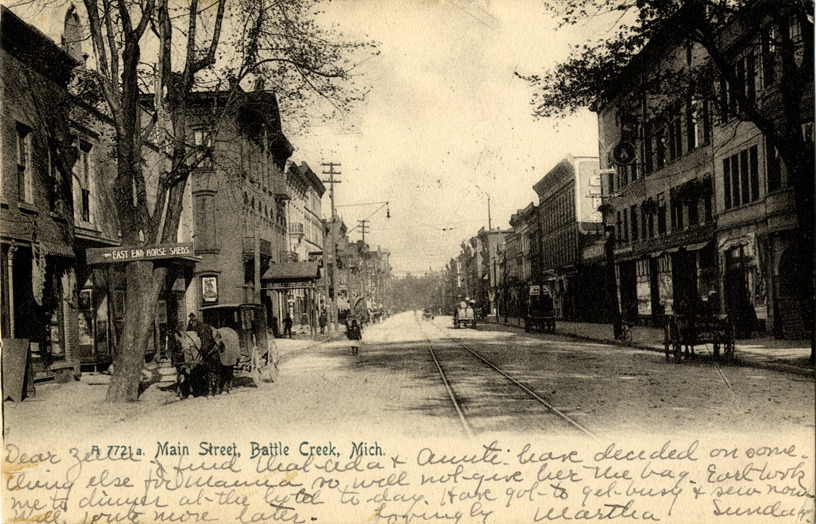 EAST END HORSE SHEDS
A 7721 a. Main Street, Battle Creek, Mich.
Dear I find that Ada & Auntie have decided on some-
thing else for Mama so will not give her the bag. Earl took
me to dinner at the hotel to day. Have got to get busy & sew now
Will write more later. Lovingly Martha Sunday.